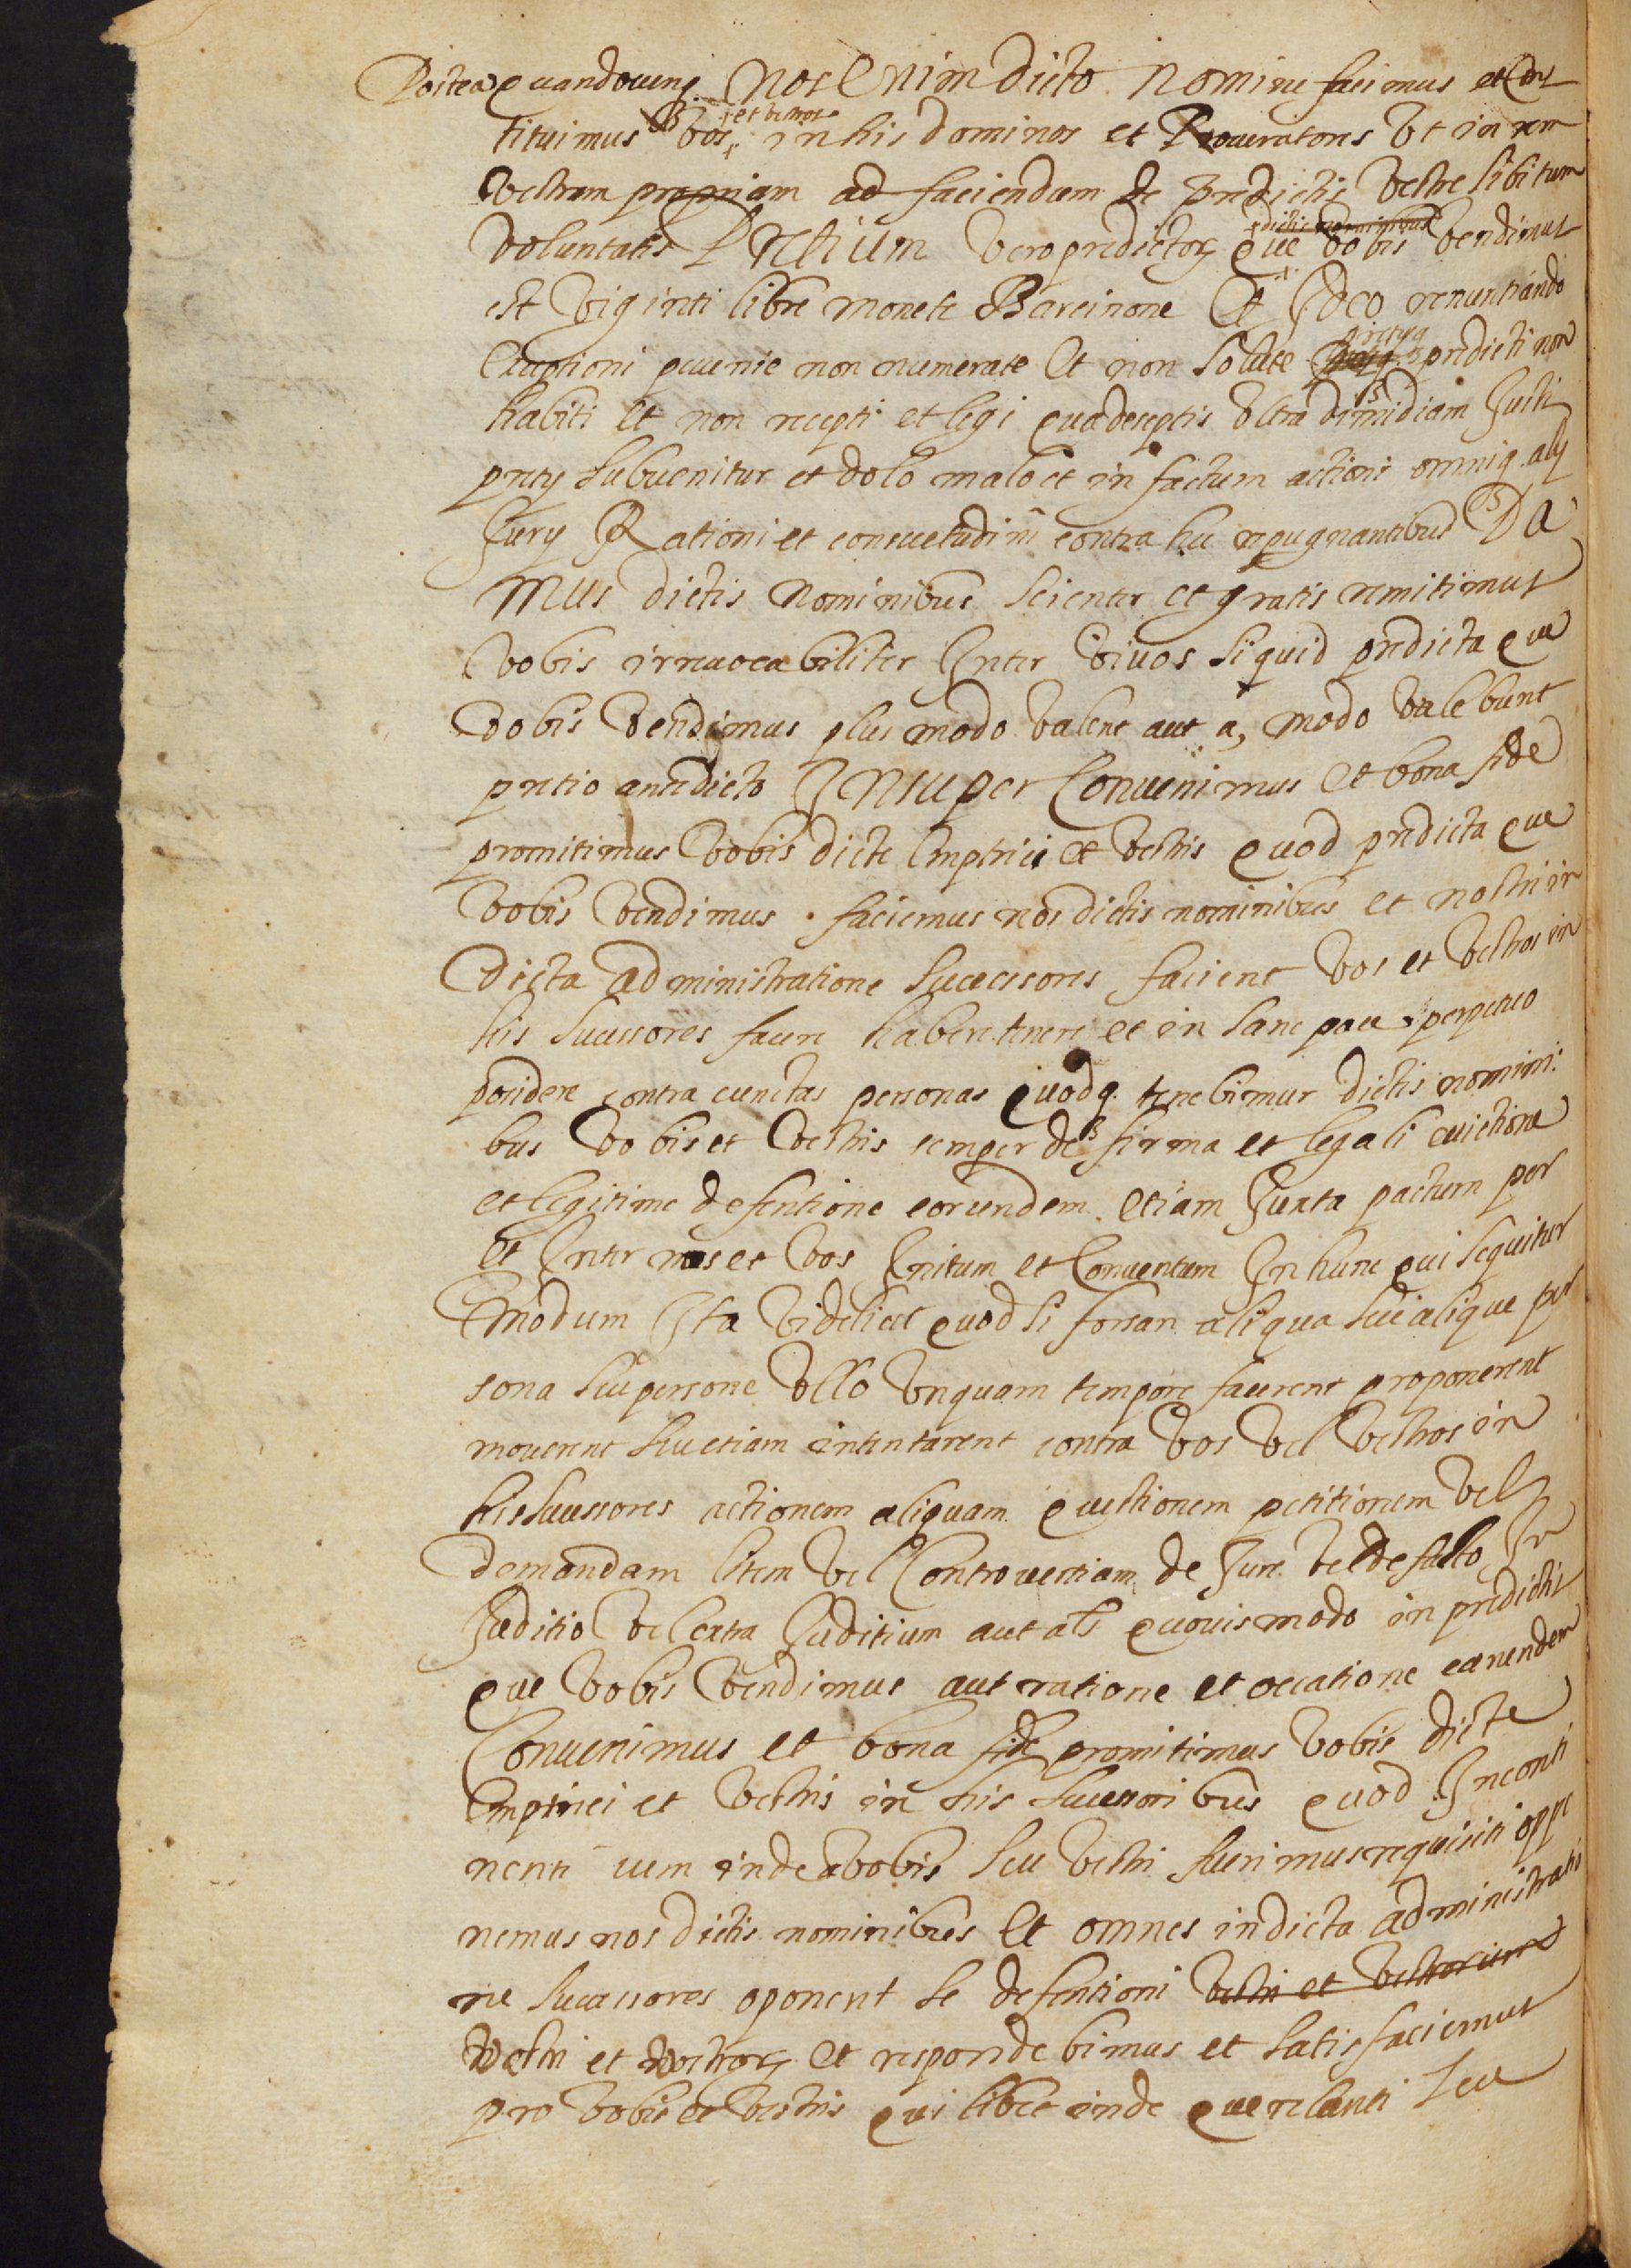 Postea quandocunq. Nos Enim dicto nomine facimus et Con
tituimus vos + et vestros in his dominos et Procuratores Vt in rem
Vestram propriam ad faciendum de predictis Vestre libitum
Voluntatis Pretium Vero predictorum que + dictis nominibus vobis Vendimus
est Viginti libre monete Barcinone Et Ideo renuntiando
Exceptioni pecunie non numerate Et non solute pretiiq. predicti non
habiti Et non recepti et legi qua deceptis Vltra dimidiam Justi
pretij subvenitur et dolo malo et in factum actioni omniq. alij
Jurij Rationi et consuetudini contra hec repugnantibus Da
mus dictis nominibus scienter et gratis remitimus
Vobis irrevocabiliter Inter Vivos si quid predicta que
Vobis Vendimus plus modo Valent aut a, modo Valebunt
pretio antedicto Insuper Convenimus Et bona fide
promitimus Vobis dicte Emptrici et Vestris quod predicta que
Vobis Vendimus . faciemus nos dictis nominibus et nostri in
Dicta administratione succesores facient Vos et Vestros in
his successores facere habere tenere et in sane pace perpetuo
posidere contra cunctas personas Quodq. tenebimur dictis nomini:
bus Vobis et Vestris semper de firma et legali evictione
et legitime defentione eorundem etiam Juxta pactum per
Et Inter nos et Vos Initum et Conventum In hunc qui sequitur
Modum Ita Videlicet quod si forsan aliqua seu alique per
sona seu persone Vllo Vnquam tempore facerent proponerent
moverent seu etiam intentarent contra Vos Vel Vestros in
his successores actionem aliquam questionem petitionem Vel
demandam litem Vel Controvertiam de Jure Vel de facto In
Juditio Vel extra Juditium aut als quovis modo in predictis
que Vobis Vendimus aut ratione et occatione earundem
Convenimus et bona fide promitimus Vobis dicte
Emptrici et Vestris in his successoribus quod Inconti
nenti cum inde a vobis seu Vestri fuerimus requisiti oppo
nemus nos dictis nominibus Et omnes in dicta administratio
ne successores oponent se defentioni Vestri et Vestrorum
Vestri et Vestrorum et respondebimus et satisfaciemus
pro Vobis et Vestris quilibet inde querelanti seu